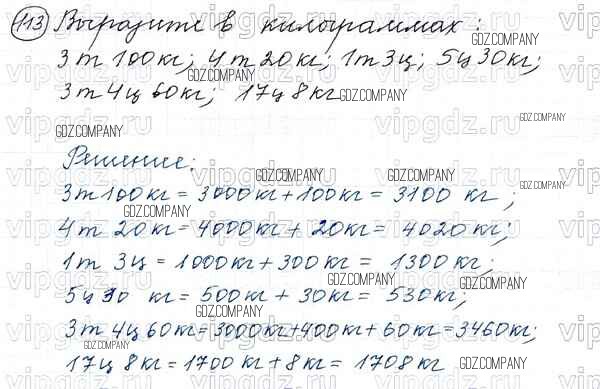 113 Выразите в килограммах:
3 т 100 кг; 4 т 20 кг; 1 т 3 ц; 5 ц 30 кг;
3 т 4 ц 60 кг; 17 ц 8 кг
Решение:
3 т 100 кг = 3000 кг + 100 кг = 3100 кг;
4 т 20 кг = 4000 кг + 20 кг = 4020 кг;
1 т 3 ц = 1000 кг + 300 кг = 1300 кг;
5 ц 30 кг = 500 кг + 30 кг = 530 кг;
3 т 4 ц 60 кг = 3000 кг + 400 кг + 60 кг = 3460 кг;
17 ц 8 кг = 1700 кг + 8 кг = 1708 кг
GDZ.COMPANY
vipgdz.ru